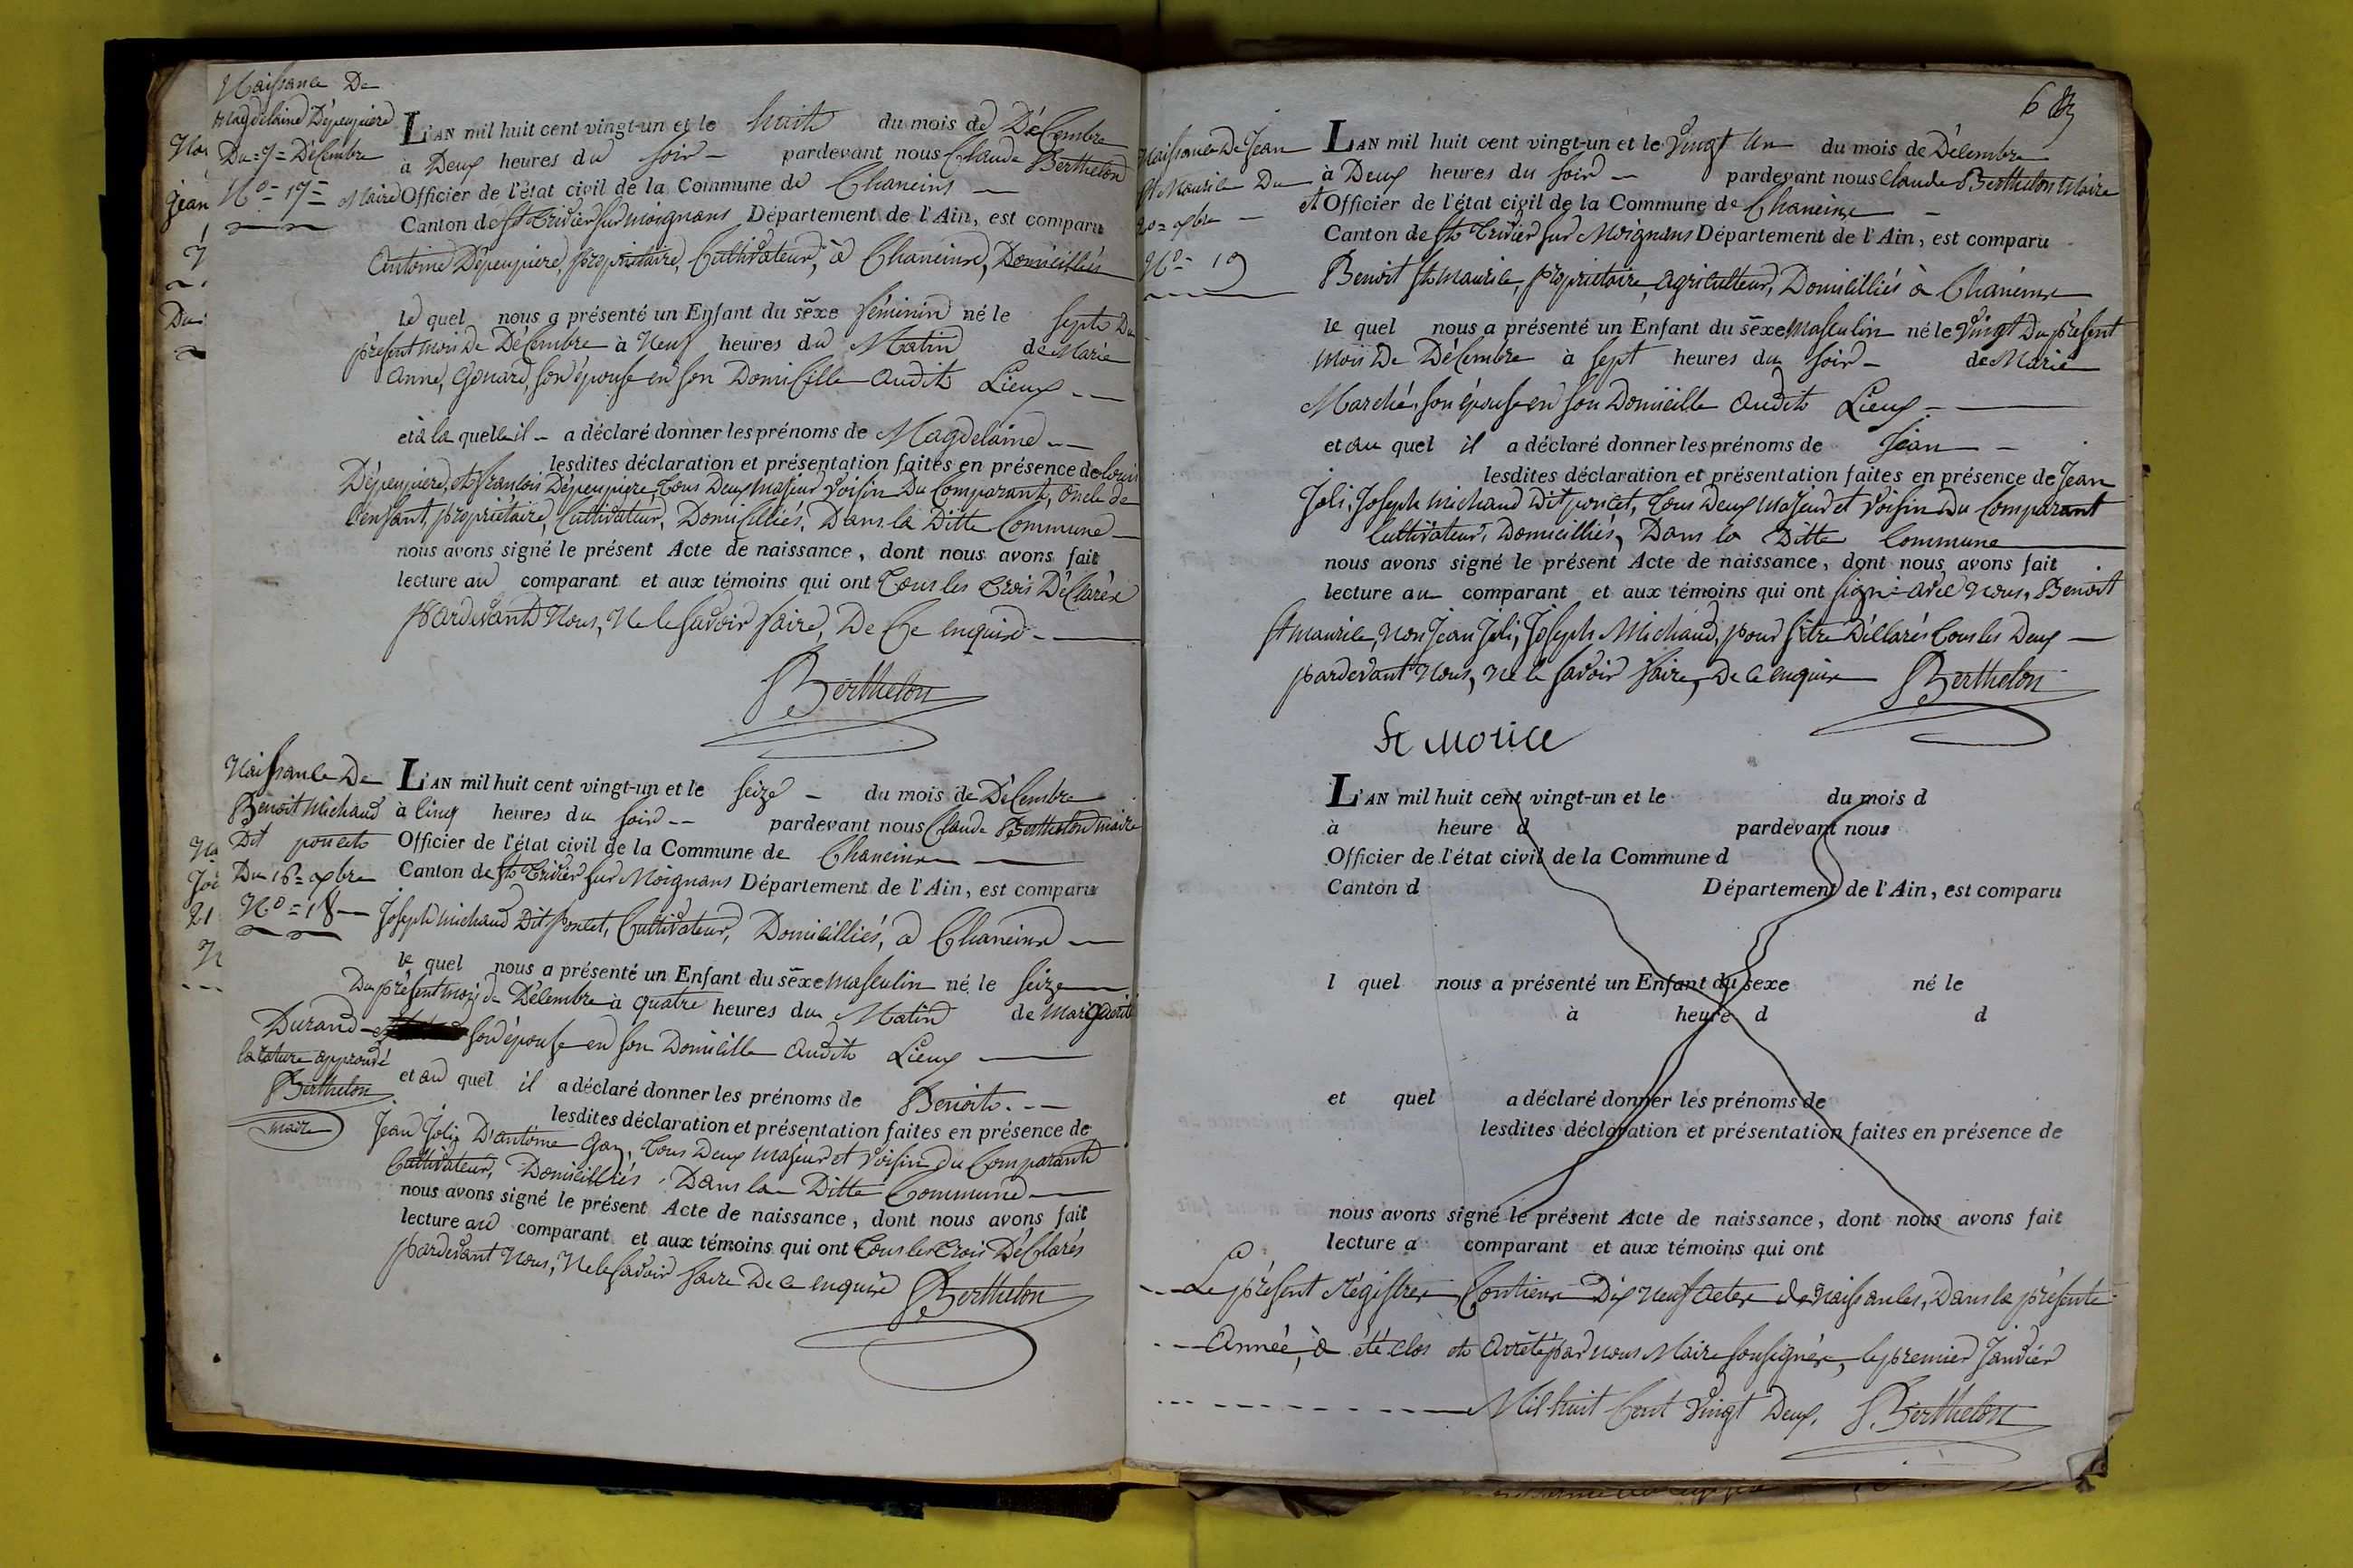 Naissance De
Magdelaine Dépeupiere
Du = 7 = Décembre
N° = 17 =
L'AN mil huit cent vingt-un et le huit du mois de Décembre
à Deux heures du soir - pardevant nous Claude Berthelon
Maire Officier de l'état civil de la Commune de Chaneins
Canton de St Trivier sur moignans Département de l'Ain, est comparu
Antoine Dépeupiere, propriétaire, Cultivateur, à Chaneins, Domicilliés
le quel nous a présenté un Enfant du sexe féminin né le sept Du
présent mois De Décembre à Neuf heures du Matin de Marie
anne, Gonard, son épouse en son Domicille Audit Lieux
et à la quelle il - a déclaré donner les prénoms de Magdelaine
lesdites déclaration et présentation faites en présence de Louis
Dépeupiere, et francois Dépeupiere, Tous Deux Majeur Voisin Du Comparant, oncle de
l'enfant, propriétaire, Cultivateur, Domicilliés, Dans la Ditte Commune
nous avons signé le présent Acte de naissance, dont nous avons fait
lecture au comparant et aux témoins qui ont Tous les Trois Déclarés
pardevant Nous, Ne le savoir faire, De Ce enquis
Berthelon
Naissance De
Benoit Michaud
Dit poncet
Du 16 = xbre
N° = 18
L'AN mil huit cent vingt-un et le seize - du mois de Décembre
à Cinq heures du soir -- pardevant nous Claude Berthelon maire
Officier de l'état civil de la Commune de Chaneins
Canton de St Trivier sur Moignans Département de l'Ain, est comparu
Joseph michaud Dit Poncet, Cultivateur, Domicilliés, à Chaneins
le quel nous a présenté un Enfant du sexe masculin né le seize
Du présent mois de Décembre à quatre heures du Matin de Margueritte
Durand son épouse en son Domicille Audit Lieux
la rature approuvé
Berthelon
maire
et au quel il a déclaré donner les prénoms de Benoit
lesdites déclaration et présentation faites en présence de
Jean Joli, D'antoine Gay, Tous Deux Majeur et Voisin du Comparant
Cultivateur, Domicilliés, Dans la Ditte Commune
nous avons signé le présent Acte de naissance, dont nous avons fait
lecture au comparant et aux témoins qui ont Tous les Trois Déclarés
pardevant Nous, Ne le savoir faire De ce enquis Berthelon
6
Naissance De Jean
St Maurice Du
20 = xbre
N° = 19
L'AN mil huit cent vingt-un et le Vingt Un du mois de Décembre
à Deux heures du soir - pardevant nous Claude Berthelon Maire
et Officier de l'état civil de la Commune de Chaneins
Canton de St Trivier sur Moignans Département de l'Ain, est comparu
Benoit St Maurice, propriétaire, agriculteur, Domicilliés à Chaneins
le quel nous a présenté un Enfant du sexe Masculin né le Vingt Du présent
Mois De Décembre à sept heures du soir - de Marie
Marché, son épouse en son Domicille Audit Lieux
et au quel il a déclaré donner les prénoms de Jean
lesdites déclaration et présentation faites en présence de Jean
Joli, Joseph Michaud Dit poncet, Tous Deux Majeur et Voisin du Comparant
Cultivateur, Domicilliés, Dans la Ditte Commune
nous avons signé le présent Acte de naissance, dont nous avons fait
lecture au comparant et aux témoins qui ont signé avec Nous, Benoit
St maurice, Non Jean Joli, Joseph Michaud, pour être Déclarés Tous les Deux
pardevant Nous, Ne le savoir faire, De ce enquis Berthelon
St Morice
L'AN mil huit cent vingt-un et le du mois d
à heure d pardevant nous
Officier de l'état civil de la Commune d
Canton d Département de l'Ain, est comparu
l quel nous a présenté un Enfant du sexe né le
à heure d d
et quel a déclaré donner les prénoms de
lesdites déclaration et présentation faites en présence de
nous avons signé le présent Acte de naissance, dont nous avons fait
lecture a comparant et aux témoins qui ont
Le présent Régistre Contient Dix Neuf actes de Naissances, Dans la présente
Année, à été clos et arrêté par nous Maire soussigné, le premier Janvier
Mil huit Cent Vingt Deux. Berthelon